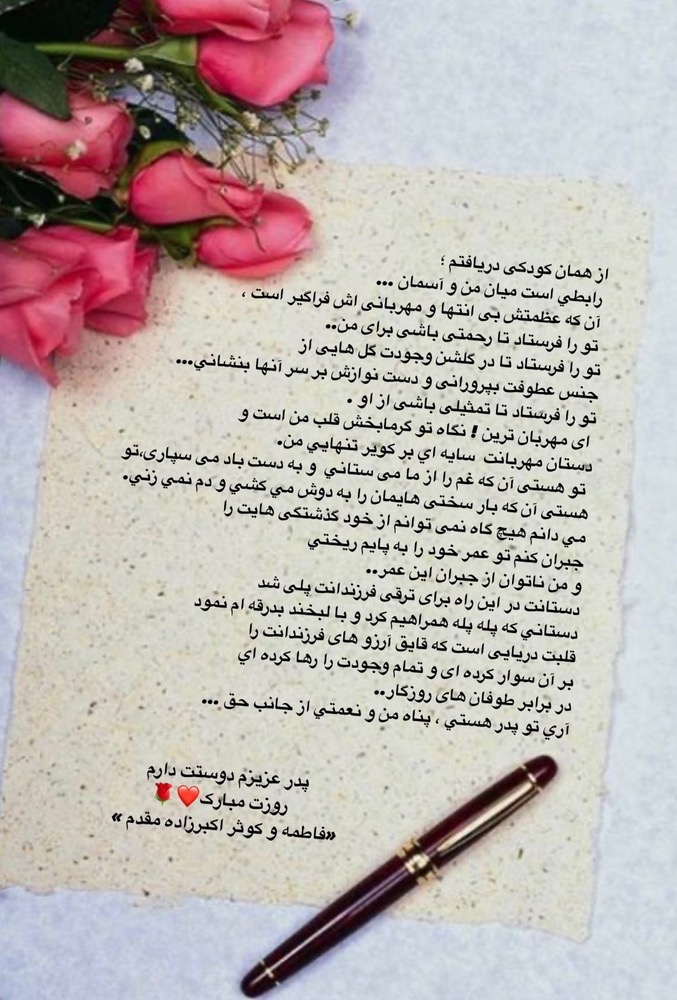 از همان کودکی دریافتم ؛
رابطي است میان من و آسمان ...
آن که عظمتش بی انتها و مهربانی اش فراگیر است ،
تو را فرستاد تا رحمتی باشی برای من..
تو را فرستاد تا در گلشن وجودت گل هایی از
جنس عطوفت بپرورانی و دست نوازش بر سر آنها بنشاني...
تو را فرستاد تا تمثیلی باشی از او .
ای مهربان ترین ! نگاه تو گرمابخش قلب من است و
دستان مهربانت سایه اي بر کویر تنهایي من.
تو هستی آن که غم را از ما می ستاني و به دست باد می سپاری،تو
هستی آن که بار سختی هایمان را به دوش مي کشي و دم نمي زني.
مي دانم هیچ گاه نمی توانم از خود گذشتگی هایت را
جبران کنم تو عمر خود را به پایم ریختي
و من ناتوان از جبران این عمر..
دستانت در این راه برای ترقی فرزندانت پلی شد
دستاني که پله پله همراهیم کرد و با لبخند بدرقه ام نمود
قلبت دریایی است که قایق آرزو های فرزندانت را
بر آن سوار کرده ای و تمام وجودت را رها کرده اي
در برابر طوفان های روزگار..
آري تو پدر هستي ، پناه من و نعمتي از جانب حق ...
پدر عزیزم دوستت دارم
روزت مبارک❤️🌹
«فاطمه و کوثر اکبرزاده مقدم »